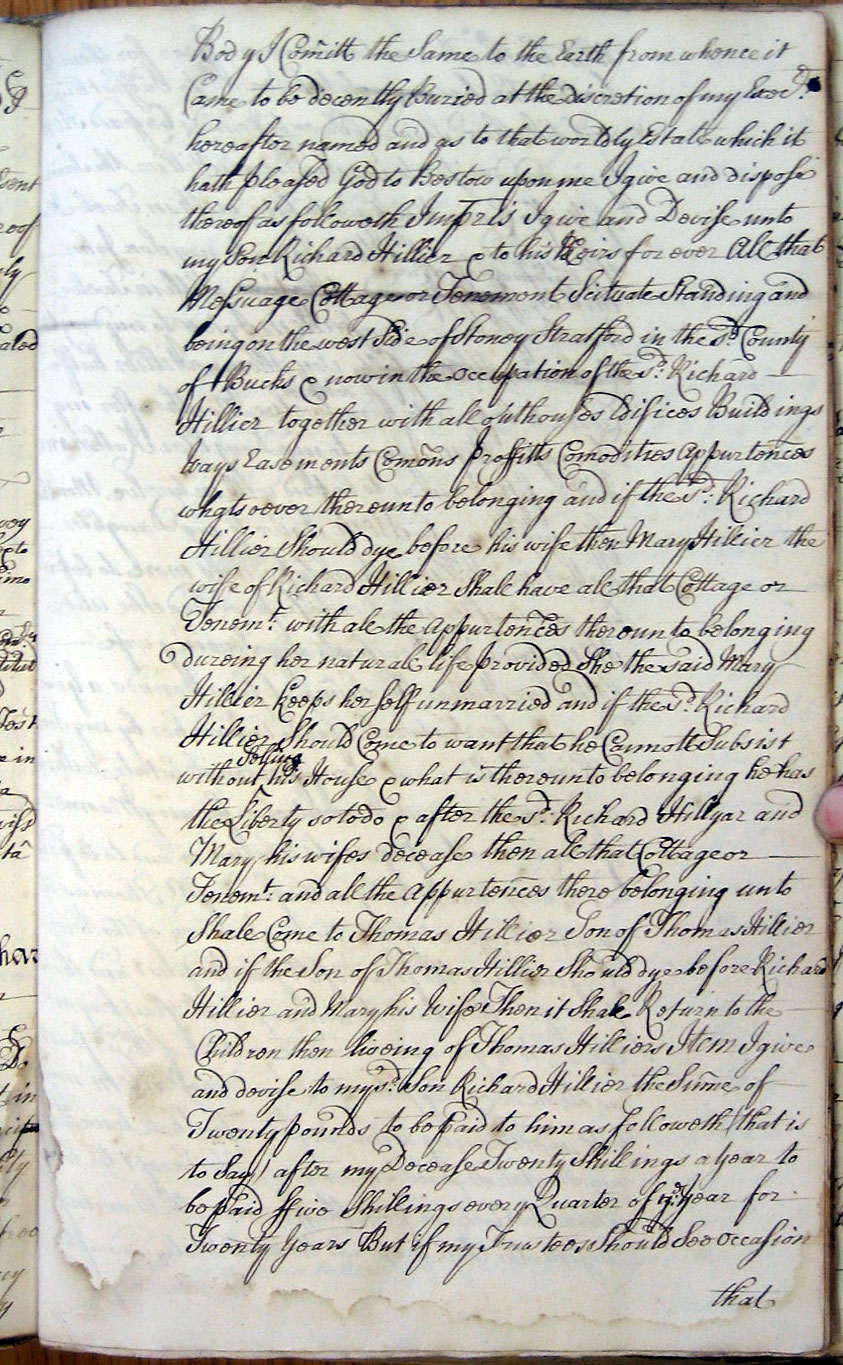 Body I Com̃itt the Same to the Earth from whence it
Came to be decently Buried at the discretion of my Exec.rs
hereafter named and as to that worldly Estate which it
hath pleased God to Bestow upon me I give and dispose
thereof as followeth Impris I give and Devise unto
my Son Richard Hillier & to his Heirs for ever All that
Messuage Cottage or Tenement Scituate Standing and
being on the west Side of Stoney Stratford in the sd. County
of Bucks & now in the Occupation of the sd. Richard
Hillier together with all outhouses Edifices Buildings
ways Easements Com̃ons proffitts Comodities Appurten̄ces
whatsoever thereunto belonging and if the sd. Richard
Hillier Should dye before his wife then Mary Hillier the
wife of Richard Hillier Shall have all that Cottage or
Tenemt. with all the Appurten̄ces thereunto belonging
dureing her natural life provided She the said Mary
Hillier keeps her self unmarried and if the sd. Richard
Hillier Should Come to want that he Cannott Subsist
Selling
without his House & what is thereunto belonging he has
the Liberty so to do & after the sd. Richard Hillyar and
Mary his wifes decease then all that Cottage or
Tenemt. and all the Appurten̄ces there belonging unto
Shall Come to Thomas Hillier Son of Thomas Hillier
and if the Son of Thomas Hillier Should dye before Richard
Hillier and Mary his Wife Then it Shall Return to the
Children then liveing of Thomas Hilliers Item I give
and devise to my sd. Son Richard Hillier the Sum̃e of
Twenty pounds to be paid to him as followeth (that is
to Say) after my Decease Twenty Shillings a year to
be paid ffive Shillings every Quarter of ye. year for
Twenty Years But if my Trustees Should See occasion
that